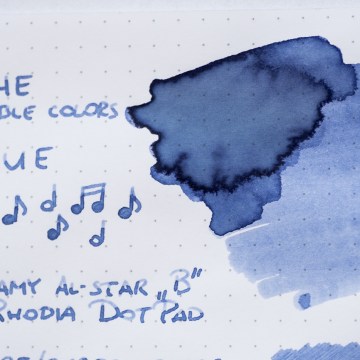 HE
BLE COLORS
UE
AMY AL-STAR „B"
RHODIA DOT PAD